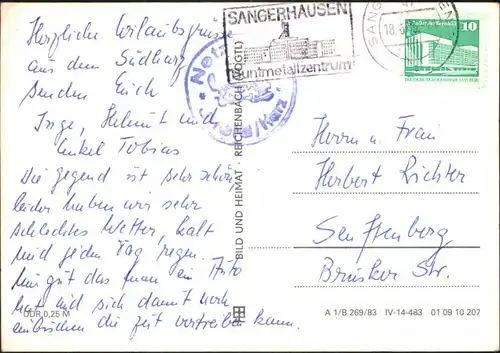 Herzliche Urlaubsgrüsse
aus dem Südharz
senden Euch
Inge, Helmut und
Enkel Tobias
Die Gegend ist sehr schön
leider haben wir sehr
schlechtes Wetter, kalt
und jeden Tag regen.
Nur gut das man ein Auto
hat und sich damit noch
einbischen die Zeit vertreiben kann.
DDR 0,25 M
BILD UND HEIMAT · REICHENBACH (VOGTL)
SANGERHAUSEN
Buntmetallzentrum
SANG
18.
10
Harz
Herrn u. Frau
Herbert Richter
Senftenberg
Str.
A 1/B 269/83 IV-14-483 01 09 10 207